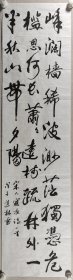 岸阔樯稀波渺茫独凭危
槛思何长萧萧远树疏林外一
半秋山带夕阳